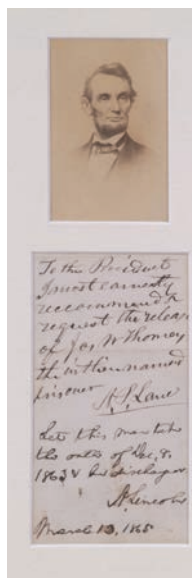 To the President
I most earnestly
reccommend &
request the release
of Jos W Thomey
the within named
prisoner
H. S. Lane
Let this man take
the oath of Dec. 8.
1863 & be discharged
A. Lincoln
March 13, 1865